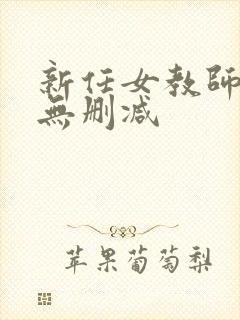 新任女教師
無删减
苹果葡萄梨